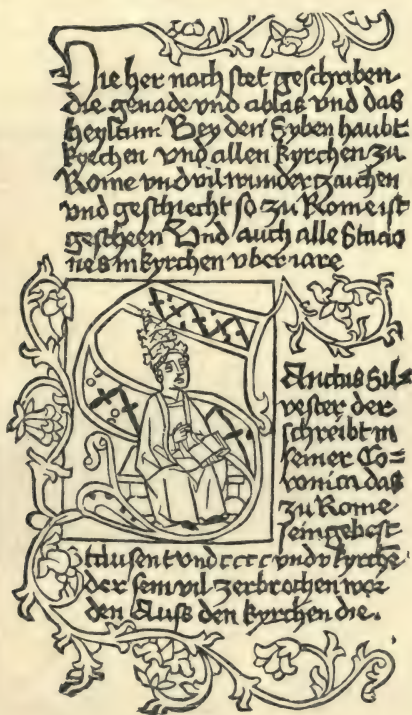 Hie her nach stet geschriben
die genade vnd ablas vnd das
heyltum Bey den Syben haubt
kyrchen vnd allen kyrchen zu
Rome vnd vil wunder zaichen
vnd geschiecht so zu Rome ist
gescheen Vnd auch alle Stacio
nes in kyrchen vber iare
Sanctus Sil=
vester der
schreibt in
seiner Co=
ronica das
zu Rome
sein gebest
tausent vnd cccc vnd v kyrche
der sein vil zerbrochen wor
den Auss den kyrchen die.